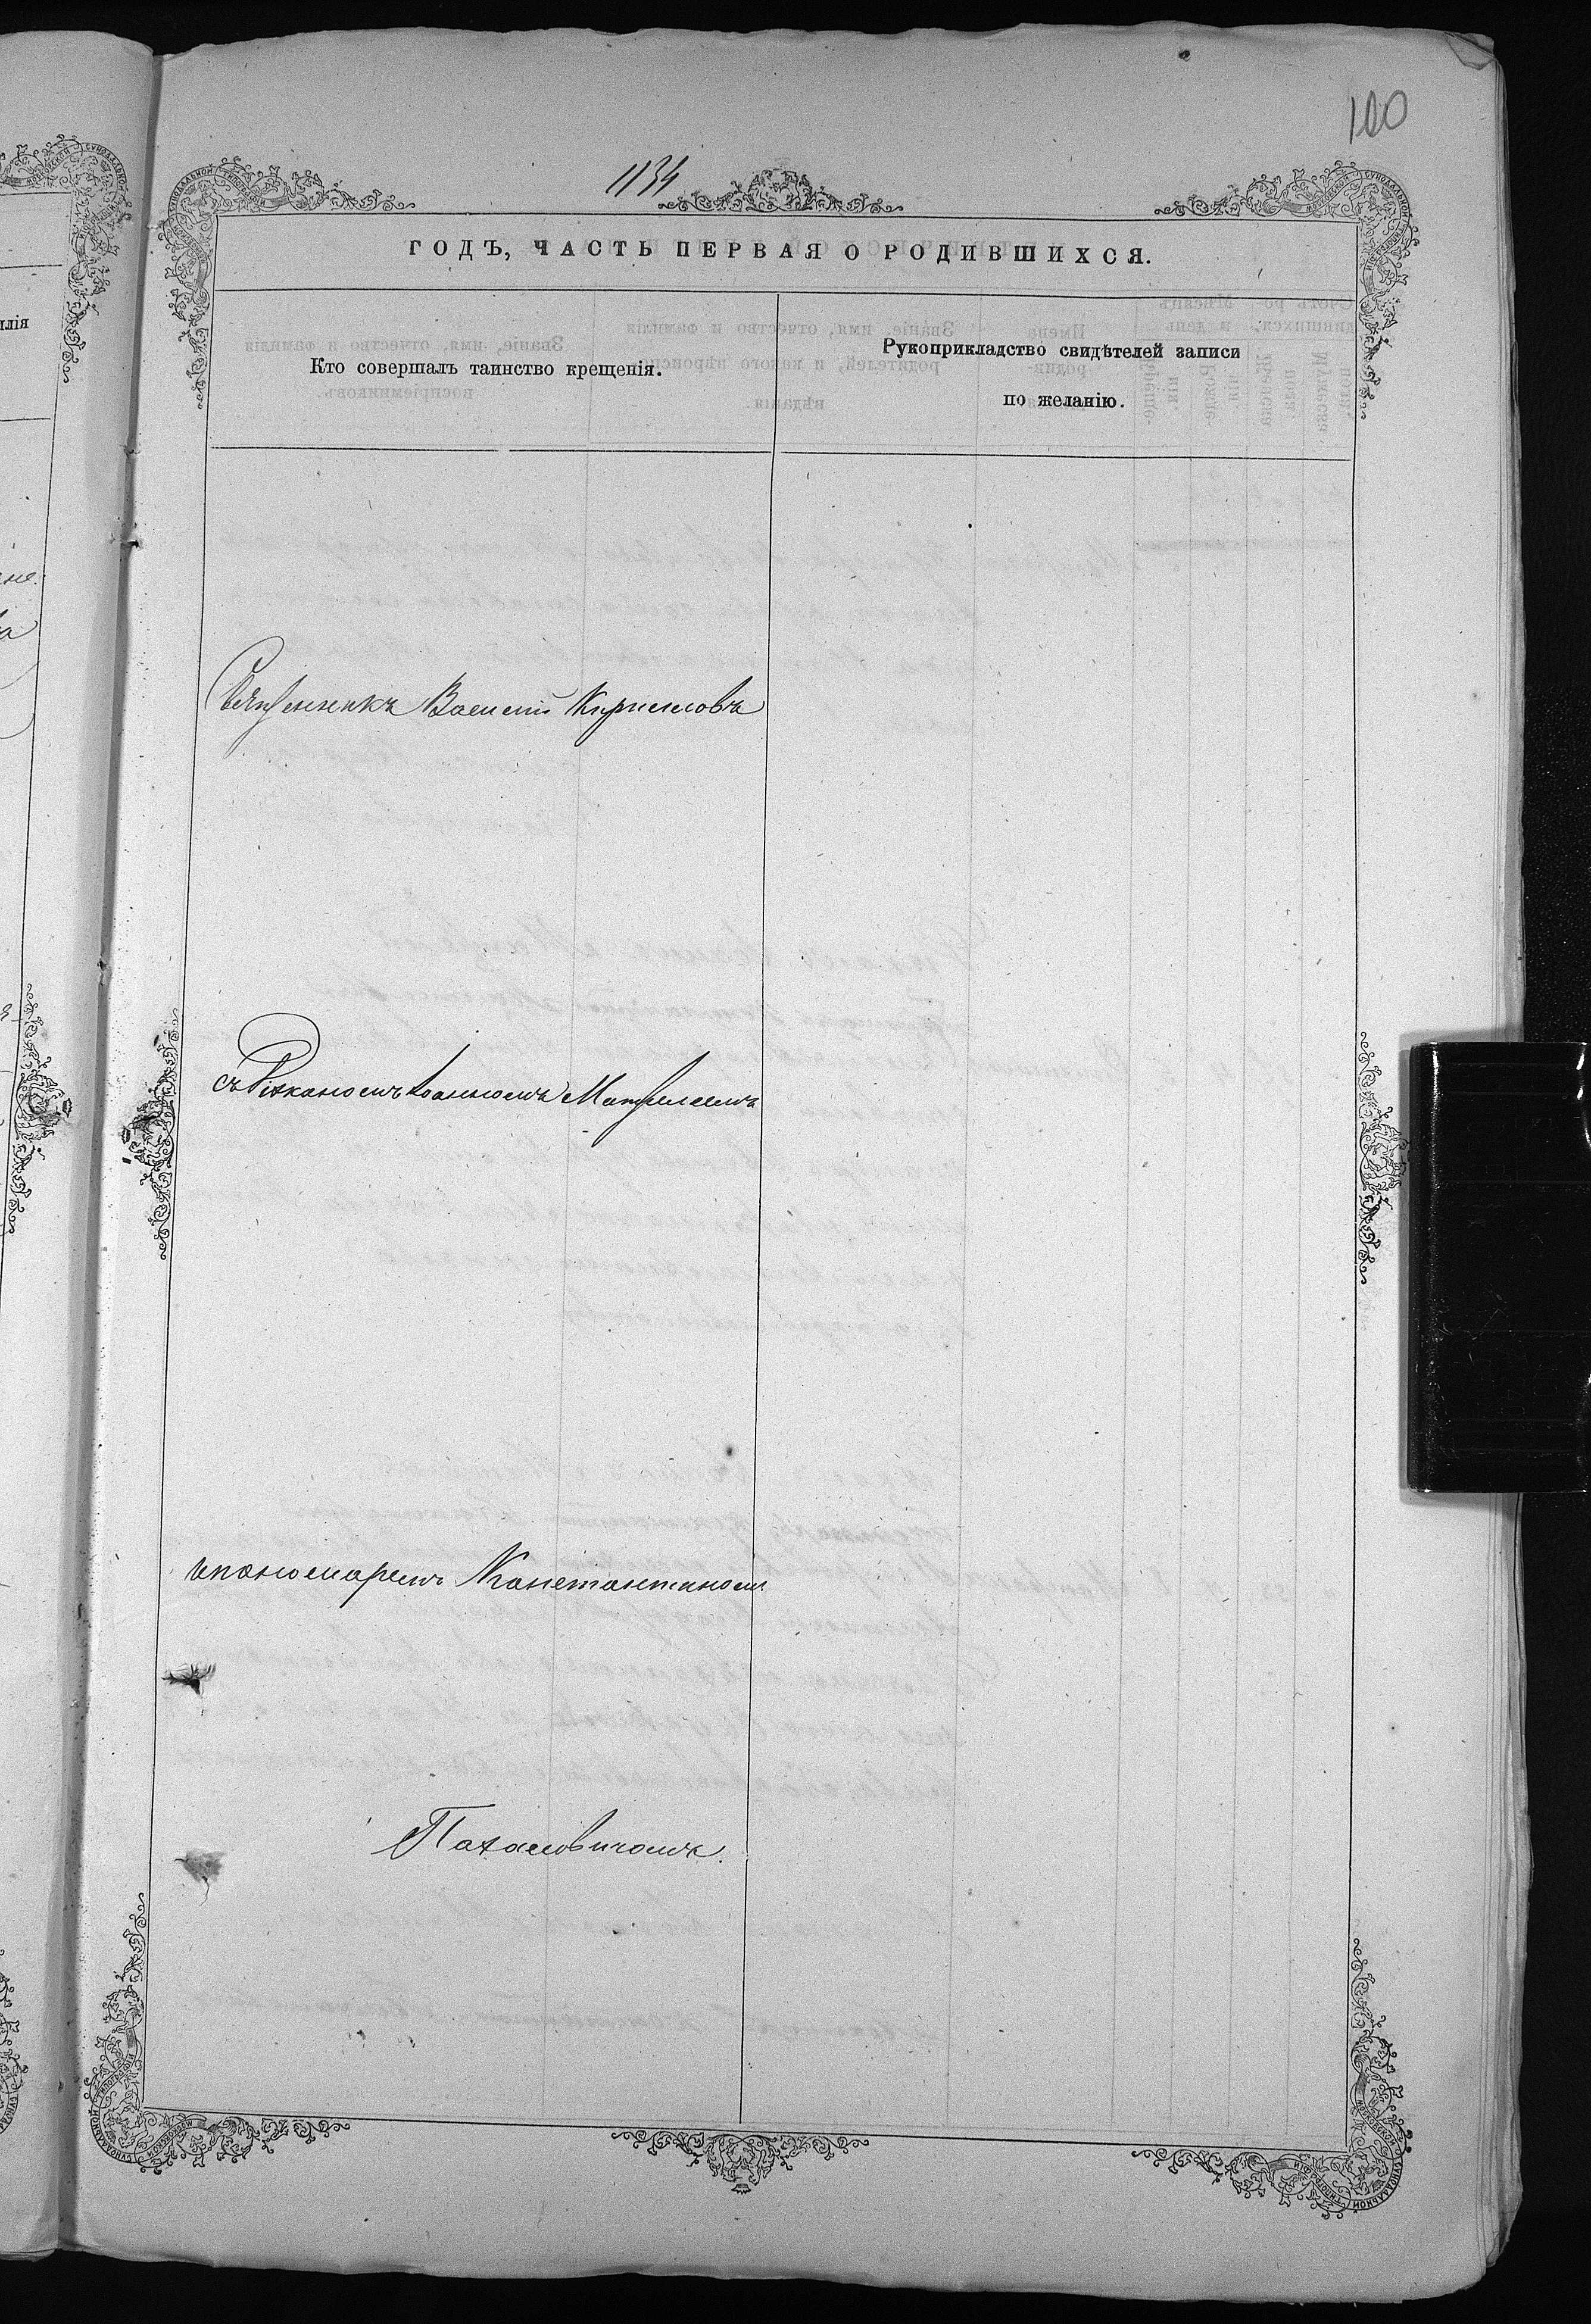 100
1134
ГОДЪ, ЧАСТЬ ПЕРВАЯ О РОДИВШИХСЯ.
Кто совершалъ таинство крещенія.
Рукоприкладство свидѣтелей записи
по желанію.
илія
Священникъ Василій Кирилловъ
съ Діакономъ Іоанномъ
и пономаремъ Константиномъ